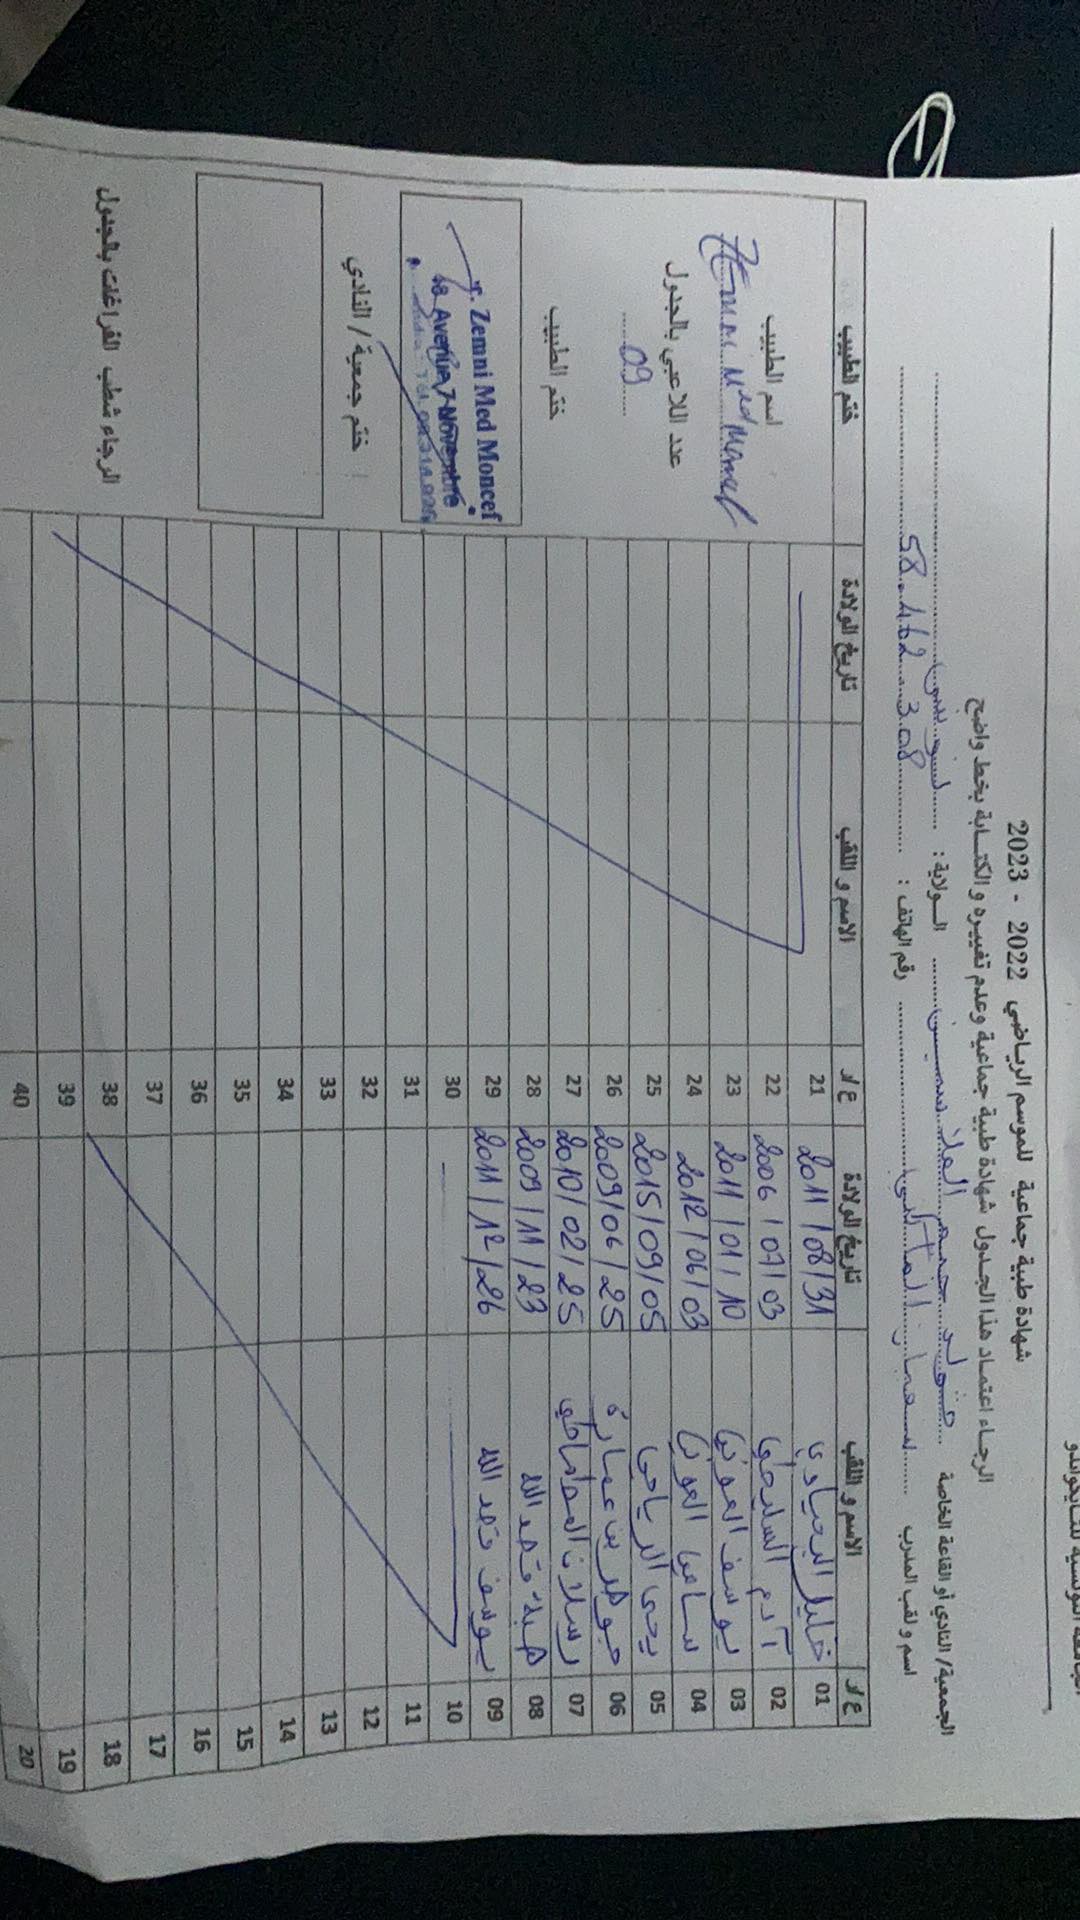 الجامعة التونسية للتايكواندو
شهادة طبية جماعية للموسم الرياضي 2022 - 2023
الرجاء اعتماد هذا الجدول شهادة طبية جماعية وعدم تغييره والكتابة بخط واضح
الجمعية/ النادي أو القاعة الخاصة ............ الولاية : ............
اسم و لقب المدرب ............ رقم الهاتف : 58.462.308
ع/ر الاسم و اللقب تاريخ الولادة ع/ر الاسم و اللقب تاريخ الولادة ختم الطبيب
01 خليل اليحياوي 2011/08/31 21
02 آدم السليطي 2006/07/03 22
03 يوسف العوني 2011/01/10 23
04 سامي العوني 2012/06/03 24
05 يحي الرياحي 2015/09/05 25
06 جوهر بن عمارة 2009/06/25 26
07 رسلان 2010/02/25 27
08 هبة فتح الله 2009/11/23 28
09 يوسف فتح الله 2011/12/26 29
10 30
11 31
12 32
13 33
14 34
15 35
16 36
17 37
18 38
19 39
20 40
اسم الطبيب
Zemni Med Moncef
عدد اللاعبي بالجدول
09
ختم الطبيب
Dr. Zemni Med Moncef
68, Avenue 7 Novembre
ختم جمعية / النادي
الرجاء شطب الفراغات بالجدول